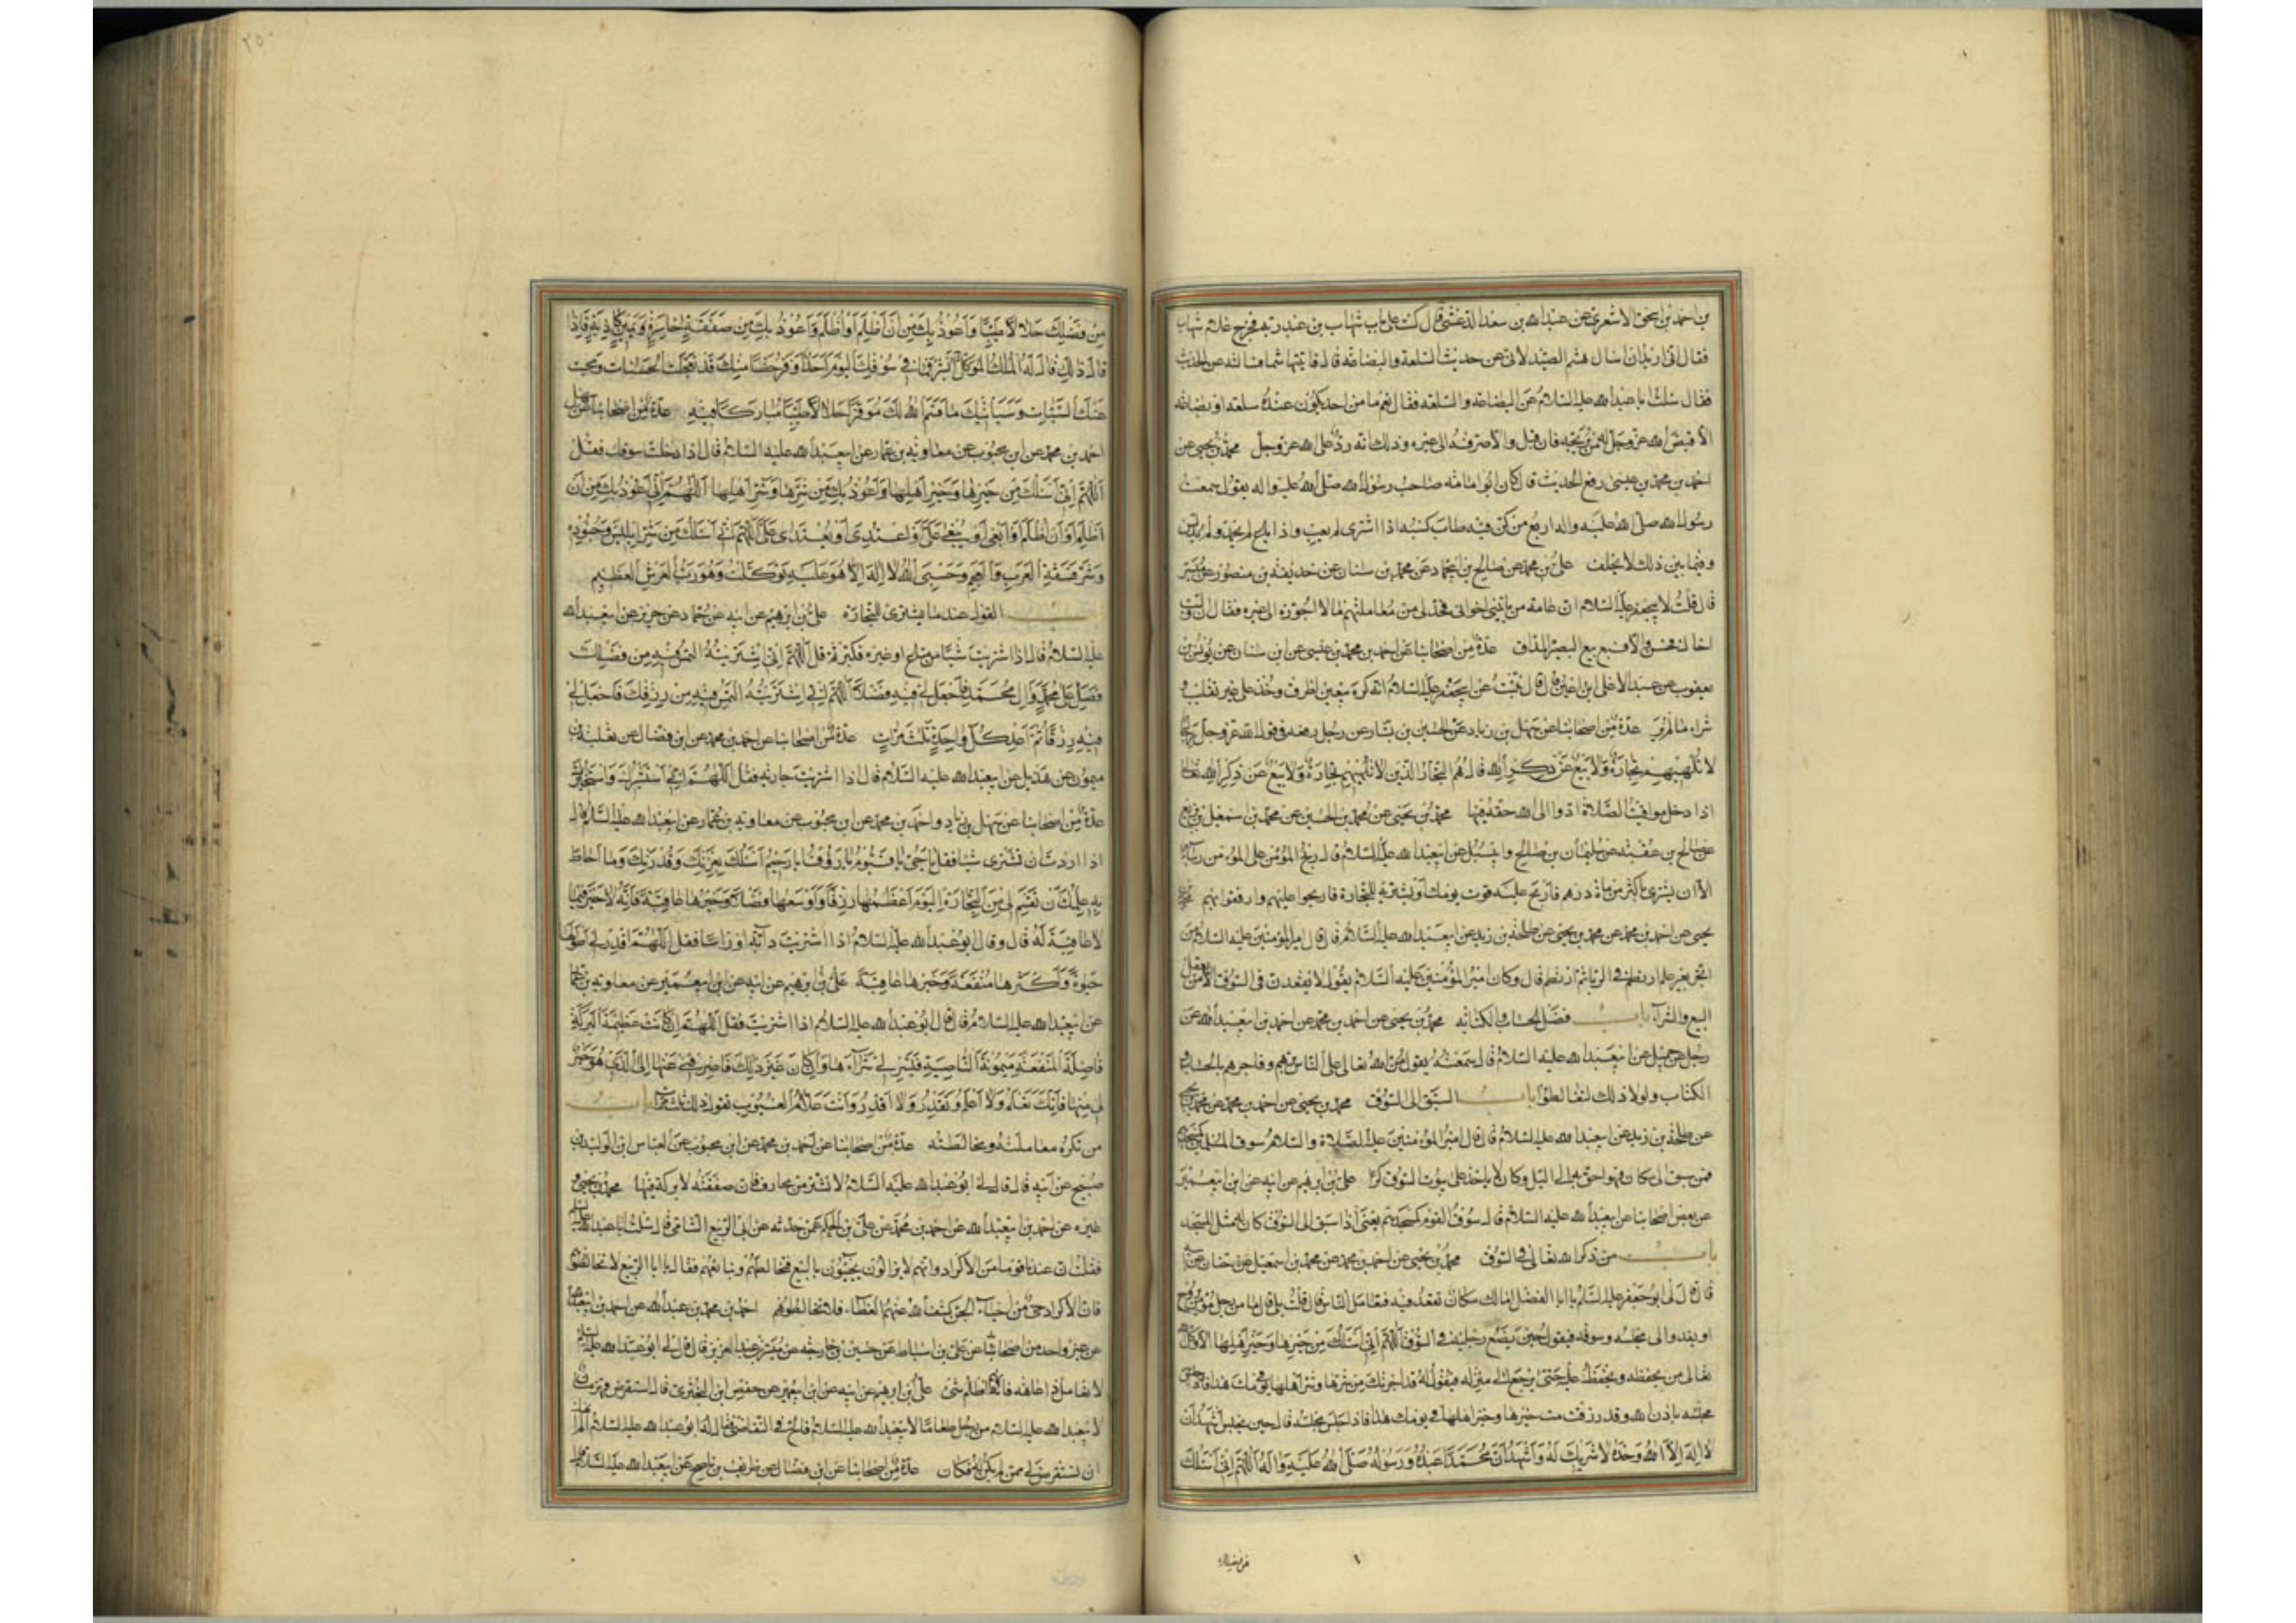 بن احمد بن اسحق الاشعری عن عبد الله بن سعيد الدغشی قال كنت على باب شهاب بن عبد ربه فخرج غلام شهاب
فقال انی اريد ان اسال هشم الصيدلانی عن حديث السلعة والبضاعه قال فاتيت هاشما فسالته عن الحديث
فقال سئلت ابا عبد الله عليه السلام عن البضاعه والسلعه فقال نعم ما من احد يكون عنده سلعه او بضاعه
الا قيض الله عز وجل له من يربحه فان قبل والا صرفه الى غيره وذلك انه رد على الله عز وجل محمد بن يحيى عن
احمد بن محمد بن عيسى رفع الحديث قال كان ابو امامه صاحب رسول الله صلى الله عليه واله يقول سمعت
رسول الله صلى الله عليه واله اربع من كن فيه طاب كسبه اذا اشترى لم يعب واذا باع لم يحمد ولم يدلس
وفيما بين ذلك لا يحلف على بن محمد عن صالح بن ابی حماد عن محمد بن سنان عن حذيفة بن منصور عن ميسر
قال قلت لابی جعفر عليه السلام ان عامة من ياتينی اخوانی فحد لی من معاملتهم ما لا اجوزه الى غيره فقال ان وليت
اخاك فحسن والا فبع بيع البصير المداق عدة من اصحابنا عن احمد بن محمد بن عيسى عن ابن سنان عن يونس بن
يعقوب عن عبد الاعلى ابن اعين قال نبئت عن ابی جعفر عليه السلام انه كره بيعين اطرف وخذ على غير تقليب و
شراء ما لم ير عدة من اصحابنا عن سهل بن زياد عن الحسين بن بشار عن رجل رفعه فی قول الله عز وجل رجال
لا تلهيهم تجارة ولا بيع عن ذكر الله قال هم التجار الذين لا تلهيهم تجارة ولا بيع عن ذكر الله تعالى
اذا دخل مواقيت الصلاة ادوا الى الله حقه فيها محمد بن يحيى عن محمد بن الحسين عن محمد بن اسمعيل بن بزيع
عن صالح بن عقبة عن سليمان بن صالح وابی شبل عن ابی عبد الله عليه السلام قال ربح المؤمن على المؤمن ربا
الا ان يشتری باكثر من مائة درهم فاربح عليه قوت يومك او يشتريه للتجارة فاربحوا عليهم وارفقوا بهم محمد بن
يحيى عن احمد بن محمد عن محمد بن يحيى عن طلحة بن زيد عن ابی عبد الله عليه السلام قال قال امير المؤمنين عليه السلام من
اتجر بغير علم ارتطم فی الربا ثم ارتطم قال وكان امير المؤمنين عليه السلام يقول لا يقعدن فی السوق الا من يعقل
البيع والشرآء باب فضل الحساب والكتابه محمد بن يحيى عن احمد بن محمد عن احمد بن ابی عبد الله عن
رجل عن جميل عن ابی عبد الله عليه السلام قال سمعته يقول من الله تعالى على الناس برهم وفاجرهم بالحساب و
الكتاب ولولا ذلك لتغالطوا باب السبق الى السوق محمد بن يحيى عن احمد بن محمد عن محمد بن يحيى
عن طلحة بن زيد عن ابی عبد الله عليه السلام قال قال امير المؤمنين عليه الصلاة والسلام سوق المسلمين كمسجدهم
فمن سبق الى مكان فهو احق به الى الليل وكان لا ياخذ على بيوت السوق كرا على بن ابرهيم عن ابيه عن ابن ابی عمير
عن بعض اصحابنا عن ابی عبد الله عليه السلام قال سوق القوم كمسجدهم يعنی اذا سبق الى السوق كان له مثل المسجد
باب من ذكر الله تعالى فی السوق محمد بن يحيى عن احمد بن محمد عن محمد بن اسمعيل عن حنان عن ابيه
قال قال لی ابو جعفر عليه السلام يا ابا الفضل اما لك مكان تقعد فيه فتعامل الناس قال قلت بلى قال ما من رجل مؤمن يروح
او يغدو الى مجلسه وسوقه فيقول حين يضع رجليه فی السوق اللهم انی اسئلك من خيرها وخير اهلها الا وكل الله
تعالى من يحفظه ويحفظ عليه حتى يرجع الى منزله فيقول له قد اجرتك من شرها وشر اهلها يومك هذا
مجلسه باذن الله وقد رزقت خيرها وخير اهلها فی يومك هذا فاذا جلس مجلسه قال حين يجلس اشهد ان
لا اله الا الله وحده لا شريك له واشهد ان محمدا عبده ورسوله صلى الله عليه واله اللهم انی اسئلك
من فضلك
٢٥٠
من فضلك حلالا طيبا واعوذ بك من ان اظلم او اظلم واعوذ بك من صفقة خاسرة ويمين كاذبة فاذا
قال ذلك قال له الملك الموكل ابشر فما فی سوقك اليوم احد اوفر حظا منك قد تعجلت الحسنات ومحيت
عنك السيئات وسياتيك ما قسم الله لك موفرا حلالا طيبا مباركا فيه عدة من اصحابنا عن سهل
احمد بن محمد عن ابن محبوب عن معاوية بن عمار عن ابی عبد الله عليه السلام قال اذا دخلت سوقك فقل
اللهم انی اسئلك من خيرها وخير اهلها واعوذ بك من شرها وشر اهلها اللهم انی اعوذ بك من ان
اظلم او ان اظلم او ابغی او يبغى على او اعتدی او يعتدى على اللهم انی اسئلك من شر ابليس وجنوده
وشر فسقة العرب والعجم وحسبی الله لا اله الا هو عليه توكلت وهو رب العرش العظيم
باب القول عند ما يشترى للتجارة على بن ابرهيم عن ابيه عن حماد عن حريز عن ابی عبد الله
عليه السلام قال اذا اشتريت شيئا من متاع او غيره فكبر ثم قل اللهم انی اشتريته التمس فيه من فضلك
فصل على محمد وال محمد فاجعل لی فيه فضلا اللهم انی اشتريته التمس فيه من رزقك فاجعل لی
فيه رزقا ثم اعد كل واحدة ثلث مرات عدة من اصحابنا عن احمد بن محمد عن ابن فضال عن ثعلبة بن
ميمون عن هذيل عن ابی عبد الله عليه السلام قال اذا اشتريت جارية فقل اللهم انی استشيرك واستخيرك
عدة من اصحابنا عن سهل بن زياد واحمد بن محمد عن ابن محبوب عن معاوية بن عمار عن ابی عبد الله عليه السلام قال
اذا اردت ان تشتری شيئا فقل يا حی يا قيوم يا رؤوف يا رحيم اسئلك بعزتك وقدرتك وما احاط
به علمك ان تقسم لی من التجارة اليوم اعظمها رزقا واوسعها فضلا وخيرها عاقبة فانه لا خير فيما
لا عاقبة له قال وقال ابو عبد الله عليه السلام اذا اشتريت دآبة او راسا فقل اللهم اقدر لی اطولها
حيوة واكثرها منفعة وخيرها عاقبة على بن ابرهيم عن ابيه عن ابن ابی عمير عن معاوية بن عمار
عن ابی عبد الله عليه السلام قال قال ابو عبد الله عليه السلام اذا اشتريت فقل اللهم ان كانت عظيمة البركة
فاضلة المنفعة ميمونة الناصية فيسر لی شرآءها وان كان غير ذلك فاصرفنی عنها الى الذی هو خير
لی منها فانك تعلم ولا اعلم وتقدر ولا اقدر وانت علام الغيوب تقول ذلك ثلث مرات باب
من تكره معاملته ومخالطته عدة من اصحابنا عن احمد بن محمد عن ابن محبوب عن العباس ابن الوليد بن
صبيح عن ابيه قال قال لی ابو عبد الله عليه السلام لا تشتر من محارف فان صفقته لا بركة فيها محمد بن يحيى و
غيره عن احمد بن ابی عبد الله عن احمد بن محمد عن على بن الحكم عمن حدثه عن ابی الربيع الشامی قال سئلت ابا عبد الله عليه السلام
فقلت ان عندنا قوما من الاكراد وانهم لا يزالون يجيئون بالبيع فنخالطهم ونبايعهم فقال يا ابا الربيع لا تخالطوهم
فان الاكراد حی من احياء الجن كشف الله عنهم الغطاء فلا تخالطوهم احمد بن محمد بن عبد الله عن احمد بن ابی عبد الله
عن غير واحد من اصحابنا عن على بن اسباط عن حسين بن خارجه عن ميسر بن عبد العزيز قال قال لی ابو عبد الله عليه السلام
لا تعامل ذا عاهة فانهم اظلم شیء على بن ابرهيم عن ابيه عن ابن ابی عمير عن حفص ابن البختری قال استقرض قهرمان
لابی عبد الله عليه السلام من رجل طعاما لابی عبد الله عليه السلام فالح فی التقاضی فقال له ابو عبد الله عليه السلام الم انهك
ان تستقرض لی ممن لم يكن له فكان عدة من اصحابنا عن ابن فضال عن ظريف بن ناصح عن ابی عبد الله عليه السلام